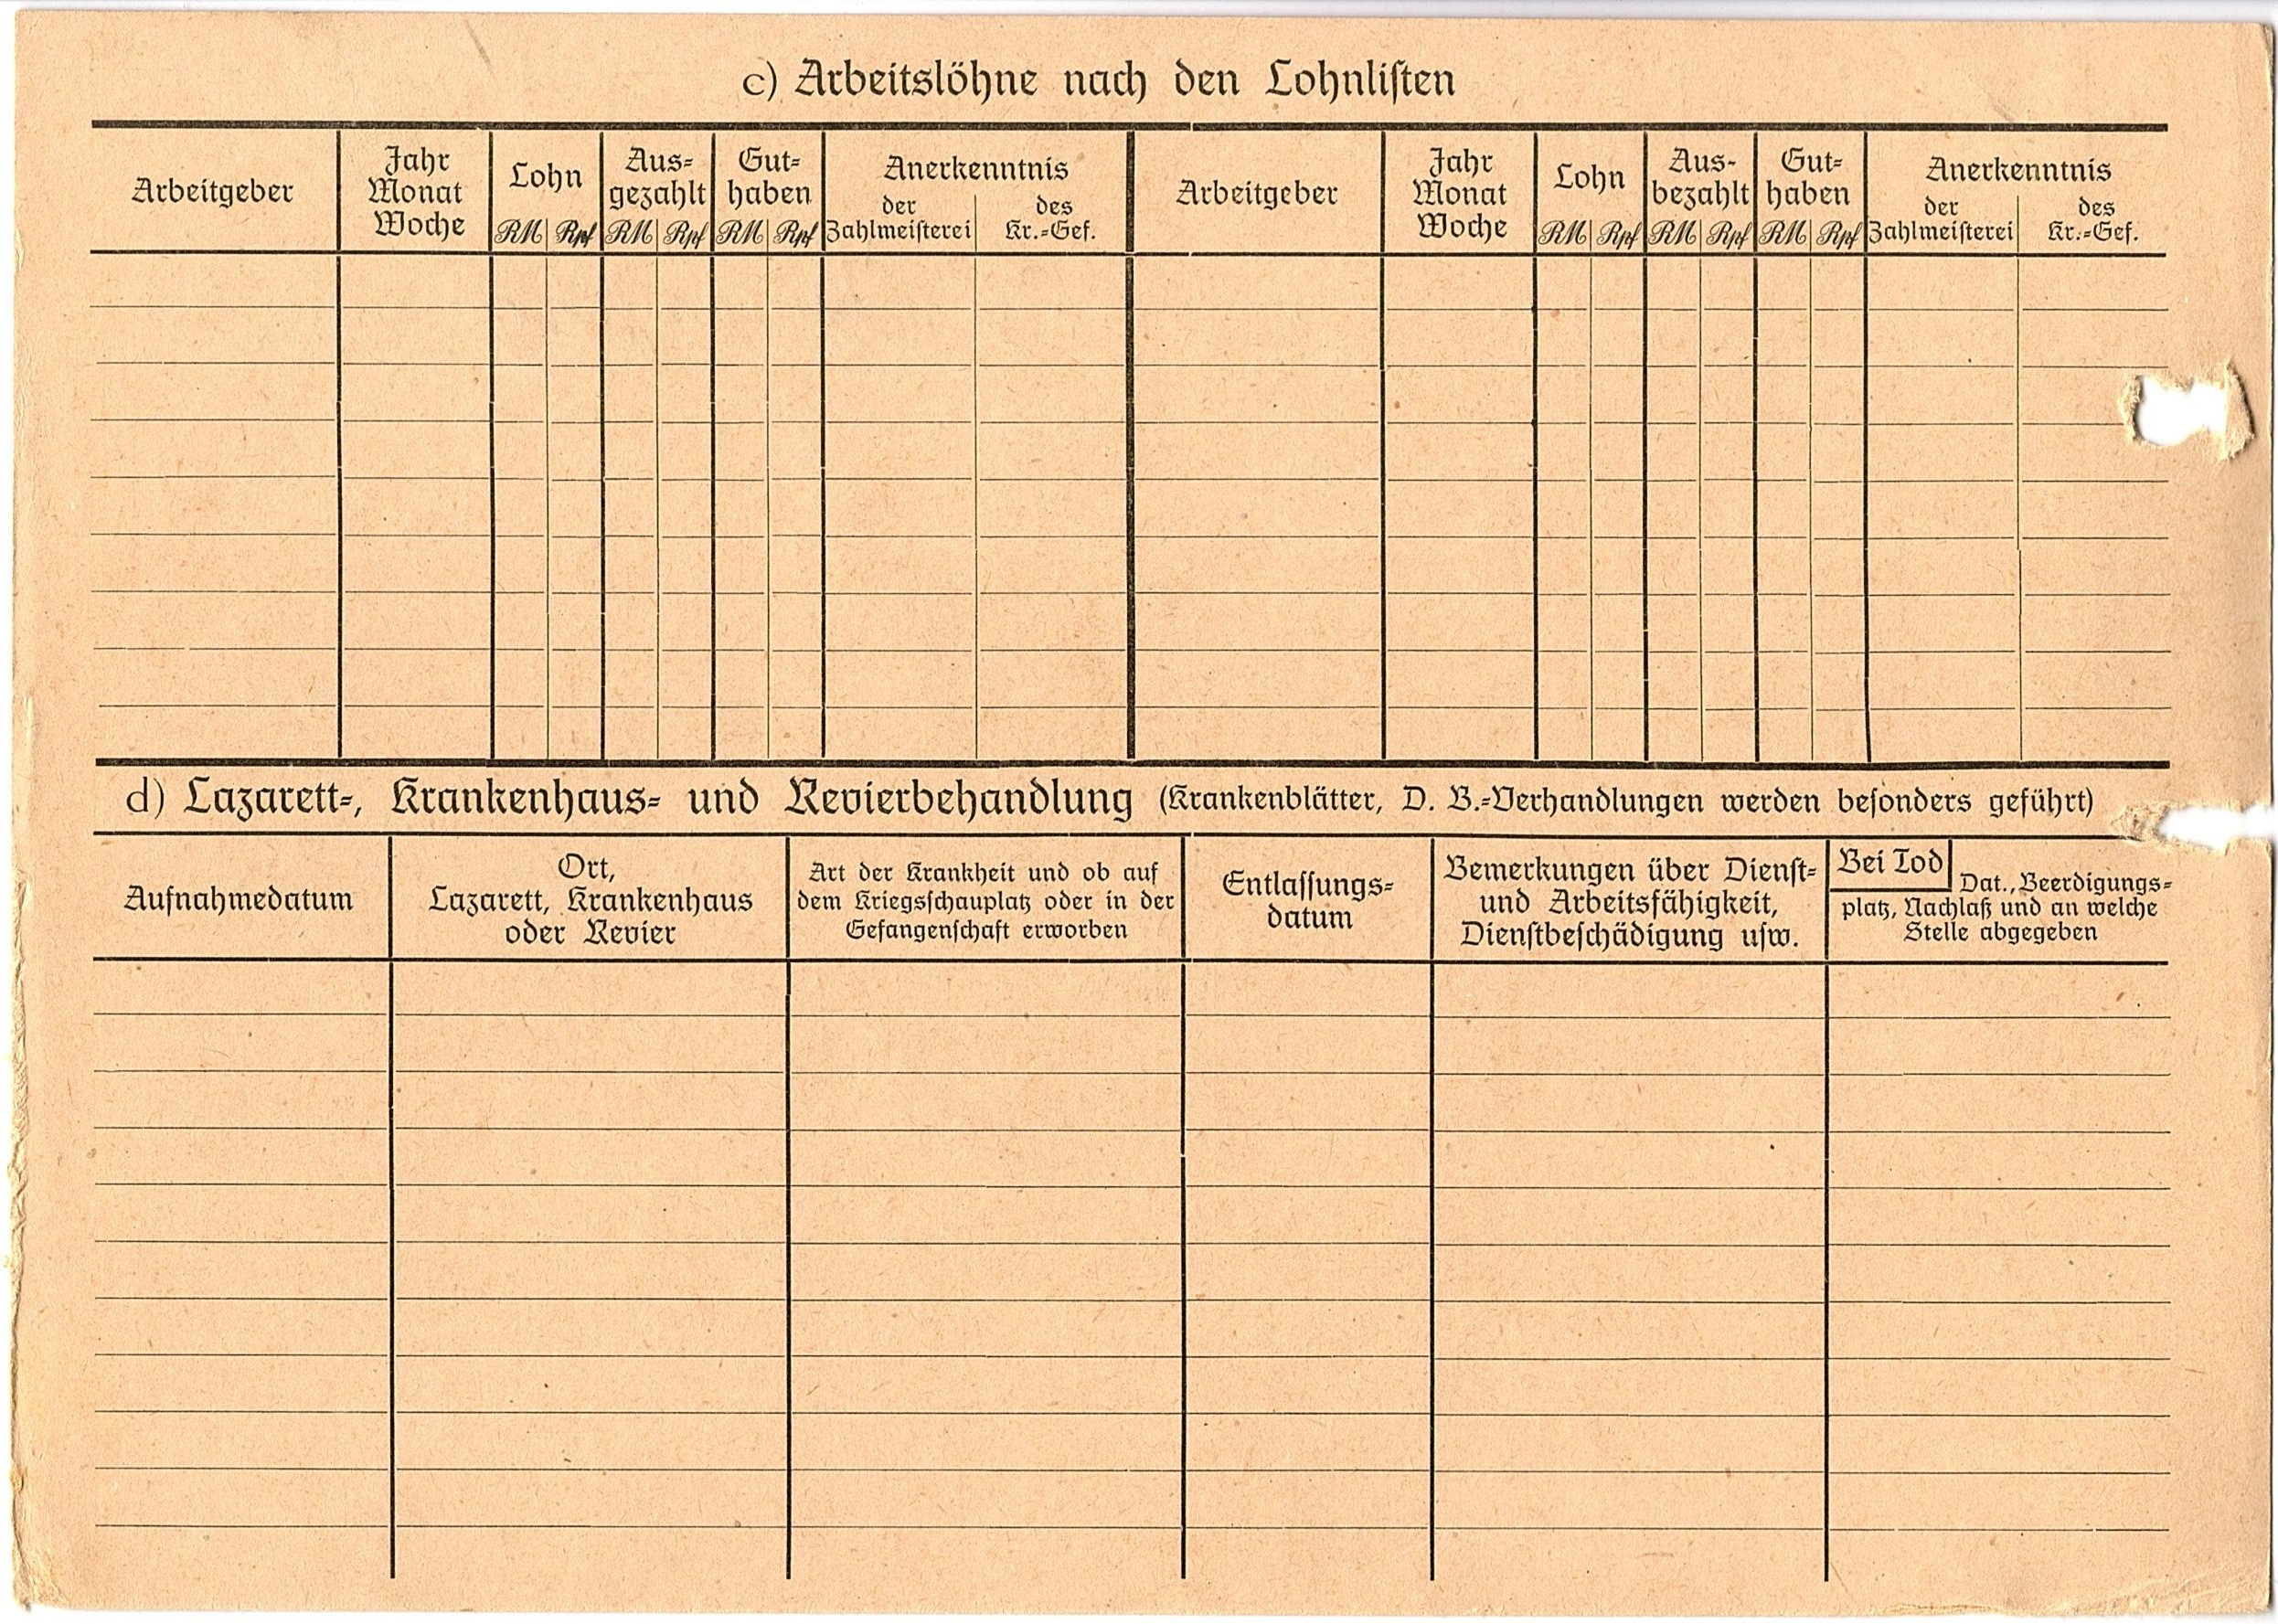 c) Arbeitslöhne nach den Lohnliſten
Arbeitgeber
Jahr
Monat
Woche
Lohn
RM Rpf
Aus-
gezahlt
RM Rpf
Gut-
haben
RM Rpf
Anerkenntnis
der
Zahlmeiſterei
des
Kr.-Gef.
Arbeitgeber
Jahr
Monat
Woche
Lohn
RM Rpf
Aus-
bezahlt
RM Rpf
Gut-
haben
RM Rpf
Anerkenntnis
der
Zahlmeiſterei
des
Kr.-Gef.
d) Lazarett-, Krankenhaus- und Revierbehandlung (Krankenblätter, D. B.-Verhandlungen werden beſonders geführt)
Aufnahmedatum
Ort,
Lazarett, Krankenhaus
oder Revier
Art der Krankheit und ob auf
dem Kriegsſchauplatz oder in der
Gefangenſchaft erworben
Entlaſſungs-
datum
Bemerkungen über Dienſt-
und Arbeitsfähigkeit,
Dienſtbeſchädigung uſw.
Bei Tod
Dat., Beerdigungs-
platz, Nachlaß und an welche
Stelle abgegeben